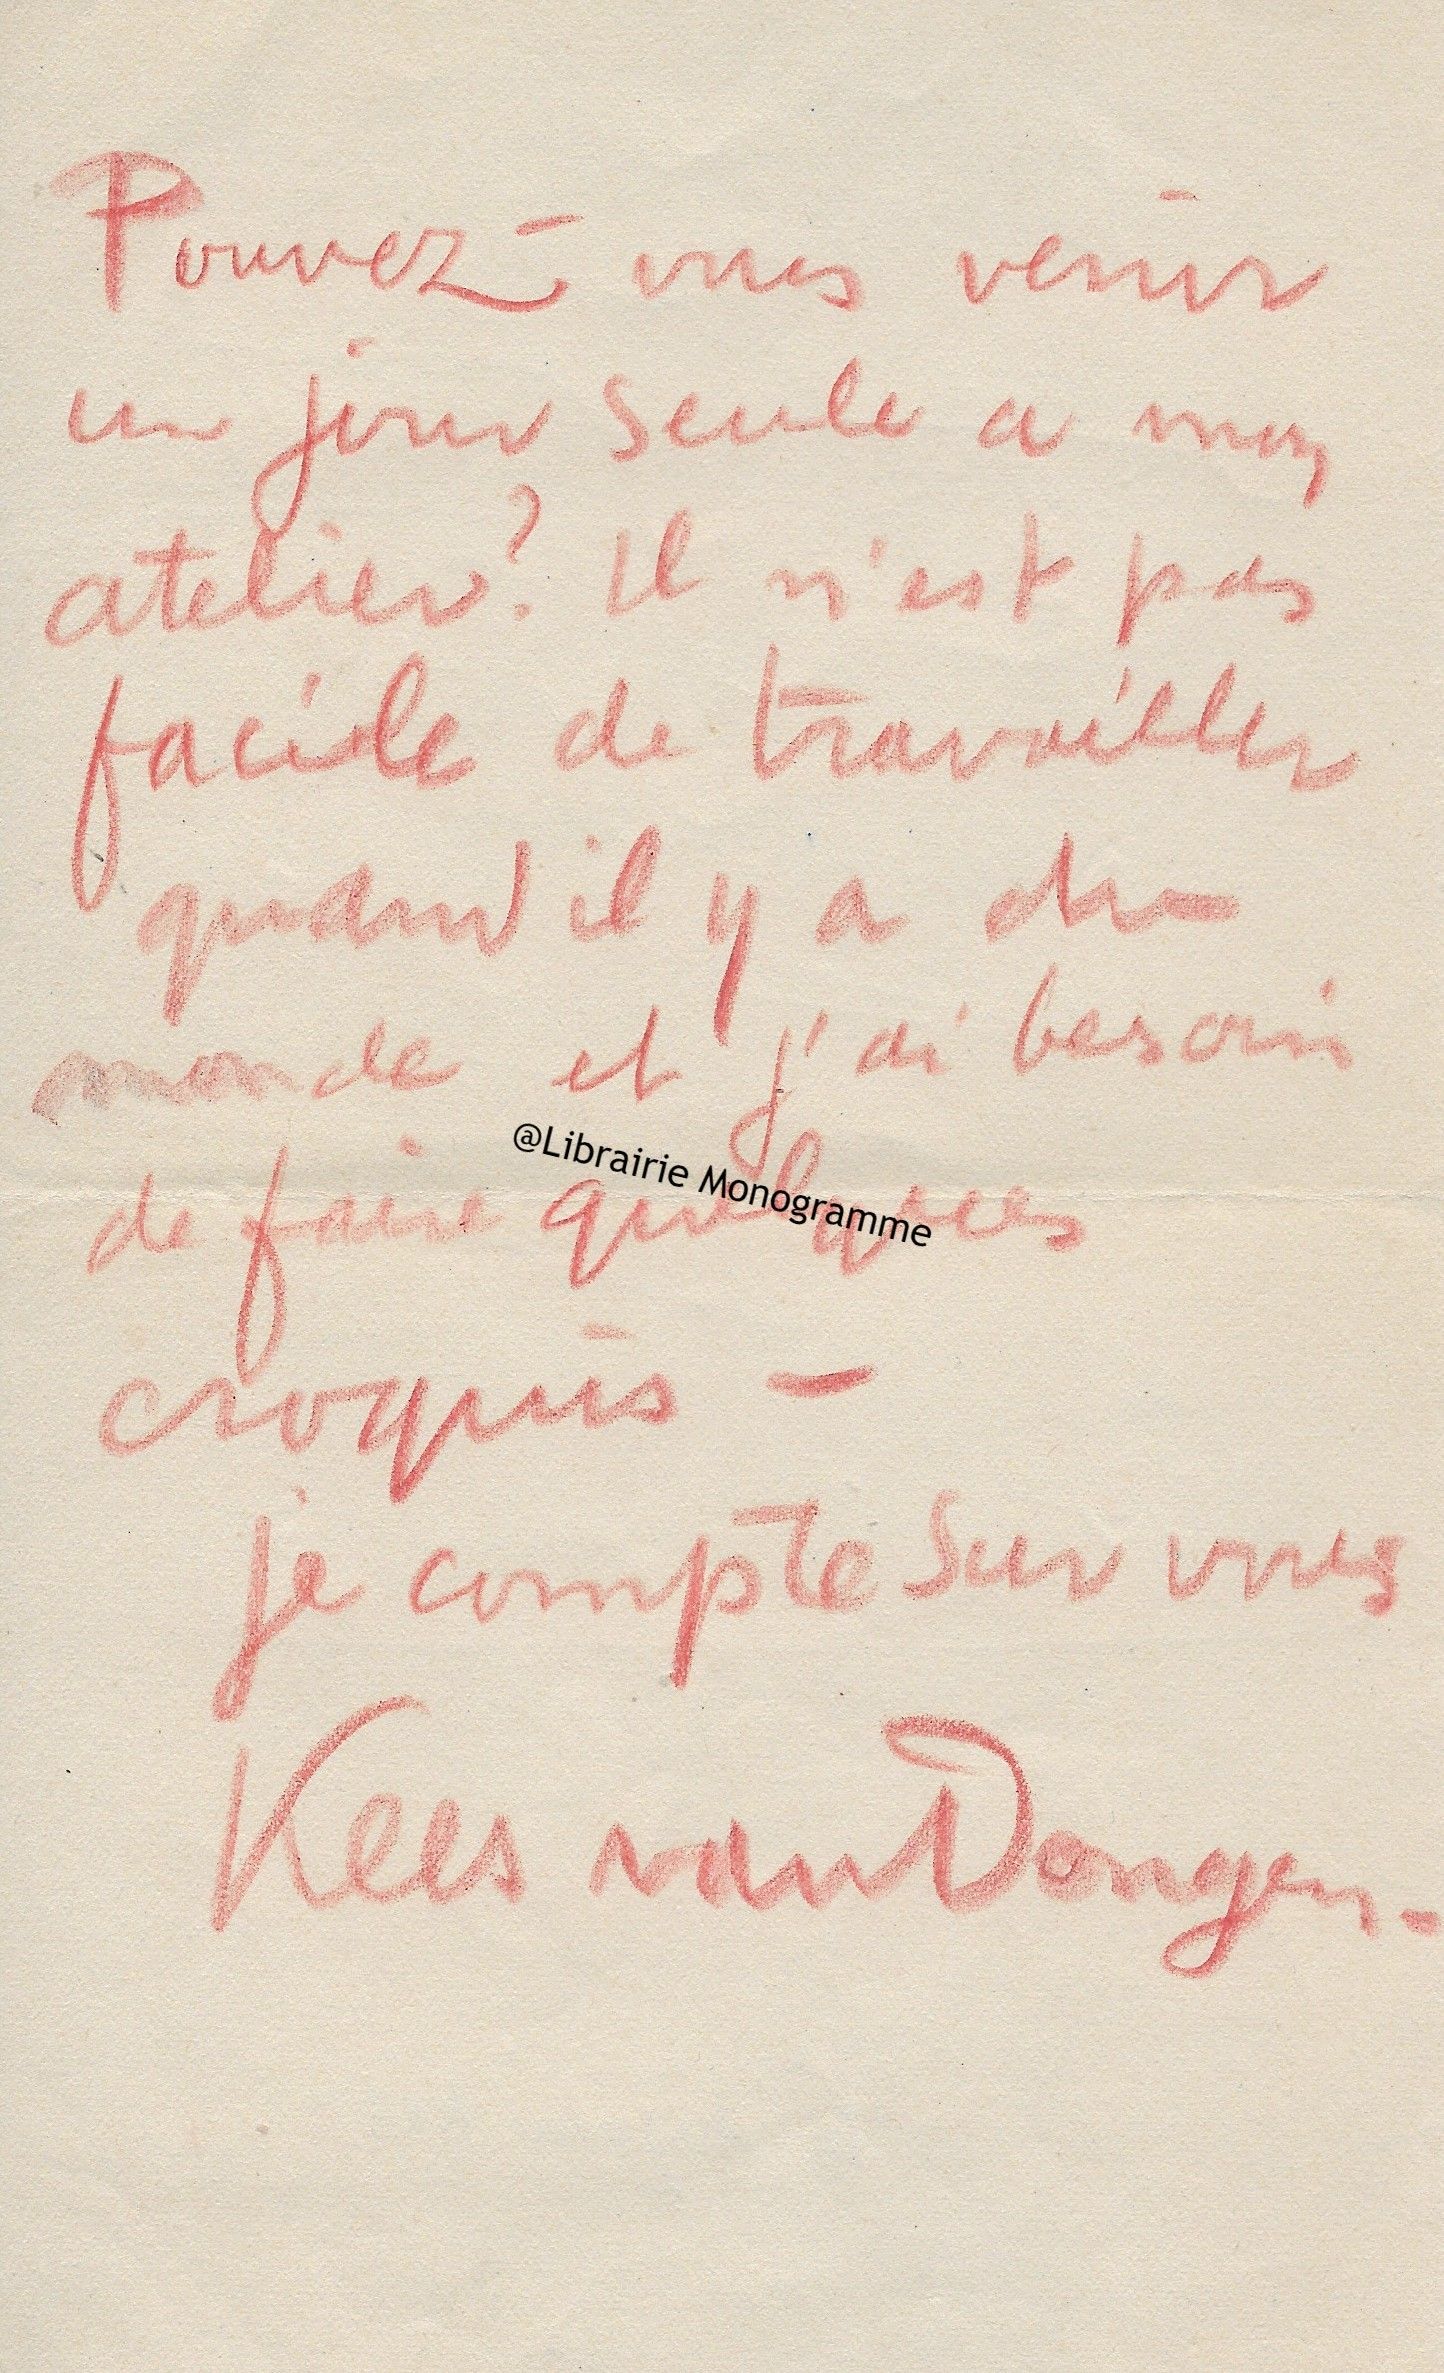 Pouvez-vous venir
un jour seule a mon
atelier? Il n'est pas
facile de travailler
quand il y a du
monde et j'ai besoin
de faire quelques
@Librairie Monogramme
croquis -
je compte sur vous
Kees van Dongen-